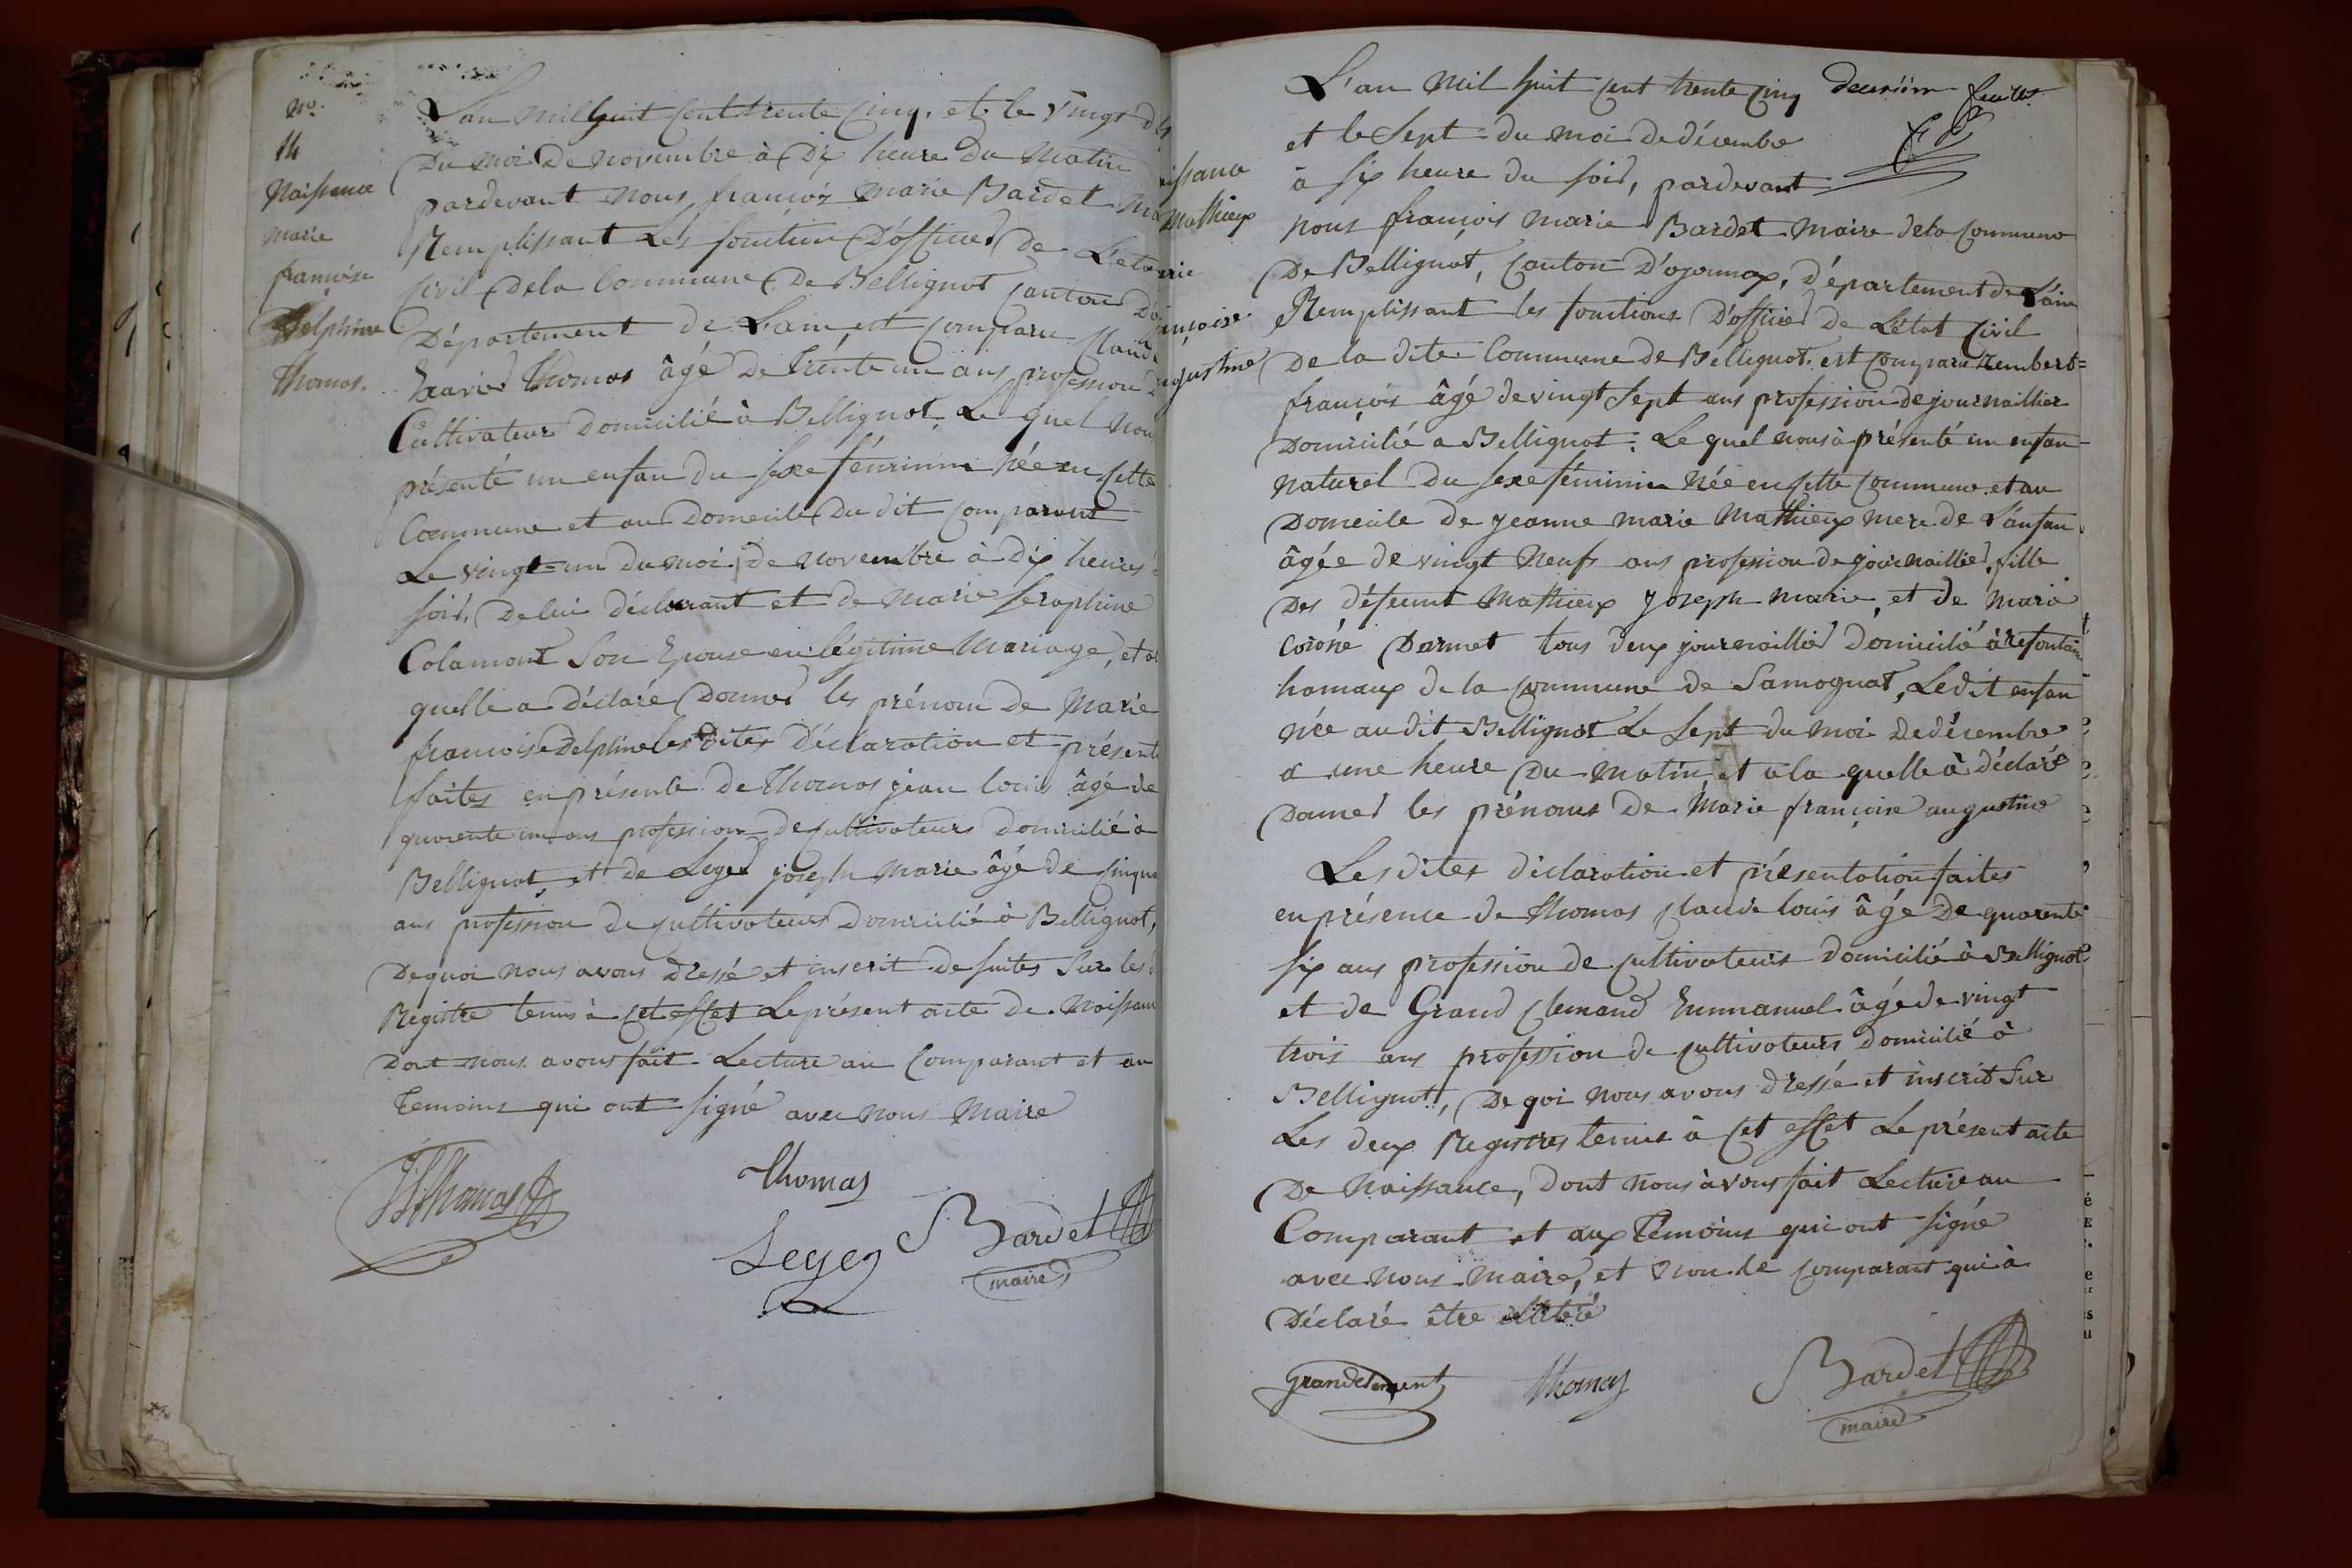 N°.
14
Naissance
Marie
françoise
Delphine
Thomas.
L'an mil huit cent trente cinq. et le vingt d
Du moi de novembre à Dix heure du Matin
pardevant nous françois Marie Bardet M
Remplissant Les fonction D'officier de L'eta
Civil dela Commune de Bellignat canton D'o
Département de L'ain est comparu Claude
Xavier Thomas âgé de trente un ans profession
Cultivateur Domicilié à Bellignat. Le quel nou
présenté un enfan du sexe féminin née en cette
Commune et au Domicile du dit comparant
Le vingt-un du moi de novembre à dix heures
soir, De lui déclarant et de Marie Seraphine
Colamont Son Epouse en légitime Mariage, et a
quelle a déclaré Donner les prénom de Marie
françoise Delphine les dites déclaration et présent
faites en présente de Thomas jean louis âgé de
quarente un ans profession de cultivateurs domicilié à
Bellignat, et de Leger joseph Marie âgé de Cinqua
ans profession de cultivateurs Domicilié à Bellignat,
De quoi nous avons dressé et inscrit de suites Sur les
Registre tenus à cet effet Le présent acte de Naissan
Dont nous avons fait Lecture au Comparant et au
Temoins qui ont signé avec nous Maire
JLThomas
Thomas
Leger
Bardet
maire
issance
Mathieux
rie
ançoise
ugustine
L'an Mil huit cent trente cinq
deuxiem feuillet
et le Sept du moi de décembre
à six heure du soir, pardevant
nous françois marie Bardet Maire dela Commune
De Bellignat, Canton D'oyonnax, Département de L'ain
Remplissant les fonctions D'officier de L'état Civil
De la dite Commune de Bellignat. est comparu Rembert=
françois âgé de vingt Sept ans profession de journaillier
Domicilié a Bellignat: Le quel nous à présenté un enfan
naturel du sexe féminin Née en cette Commune et au
Domicile de Jeanne marie Mathieux mere de L'anfan.
âgée de vingt Neuf ans profession de journaillier, fille
Des défeunt Mathieux Joseph marie, et de Marie
Darmet tous deux journaillier domicilié à
hamaux de la Commune de Samognat, Ledit enfan
née au dit Bellignat Le Sept du moi de décembre
a une heure Du Matin, et a la quelle à déclaré
Donner les prénoms de Marie françoise augustine
Les dites déclaration et présentation faites
en présence de Thomas Claude louis âgé De quarente
six ans profession de cultivateurs Domicilié à Bellignat
et de Grand Clemand Emmanuel âgé de vingt
trois ans profession de cultivateurs Domicilié à
Bellignat, De qoi nous avons dressé et inscrit Sur
Les deux Registres tenus à cet effet Le présent acte
De Naissance, dont nous avons fait Lecture au
Comparant et aux Temoins qui ont signé
avec nous Maire, et non le comparant qui à
Déclaré être illitéré
Grandclement
Thomas
Bardet
maire